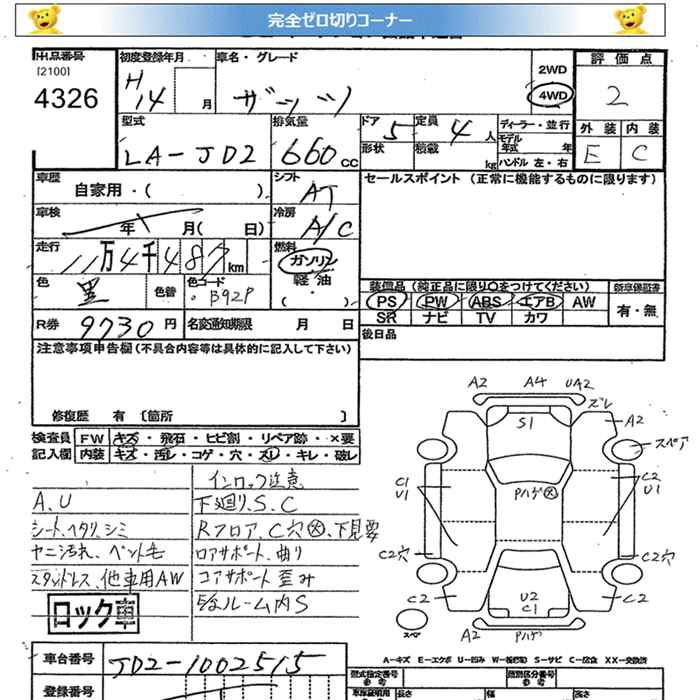 完全ゼロ切りコーナー
出品番号
[2100]
4326
初度登録年月
H14 月
車名・グレード
ザッツ
2WD
4WD
評価点
2
外装 内装
E C
型式
LA-JD2
排気量
660 CC
ドア 5
形状
定員 4 人
積載 kg
ディーラー・並行
モデル年式 年
ハンドル 左・右
車歴
自家用・( )
シフト
AT
セールスポイント (正常に機能するものに限ります)
車検
年 月( 日)
冷房
A/C
走行
11万4千487km
燃料
ガソリン
軽油
・( )
色
黒
色替
色コード
B92P
装備品(純正品に限り○をつけてください)
PS PW ABS エアB AW
SR ナビ TV カワ
新車保証書
有・無
R券 9730 円
名変通知期限 月 日
後日品
注意事項申告欄(不具合内容等は具体的に記入して下さい)
修復歴 有 [箇所 ]
検査員記入欄
FW キズ・飛石・ヒビ割・リペア跡・×要
内装 キズ・汚れ・コゲ・穴・スレ・キレ・破レ
インロック注意
A.U
下廻り、S.C
シート、ヘタリ、シミ
Rフロア、C穴、下見要
ヤニ汚れ、ペット毛
ロアサポート、曲り
スタッドレス、他車用AW
コアサポート歪み
ルーム内S
ロック車
A2 A4 UA2
ズレ
S1
A2
スペア
C1
U1
Pハゲ
C2
U1
C2穴
C2穴
C2
U2
C1
C2
スペア
A2 Pハゲ
A-キズ E-エクボ U-凹み W-補修跡 S-サビ C-腐食 XX-交換済
車台番号
JD2-1002515
登録番号
型式指定番号
参考
類別区分番号
参考
長さ
幅
高さ